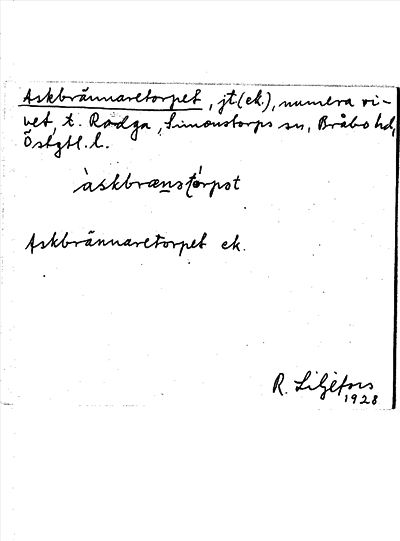 Askbrännaretorpet, jt (ek.), numera ri-
vet, t. Rodga, Simonstorps sn, Bråbo hd,
Östgtl. l.
àskbrænstɷ́rpət
Askbrännaretorpet ek.
R. Liljefors
1928